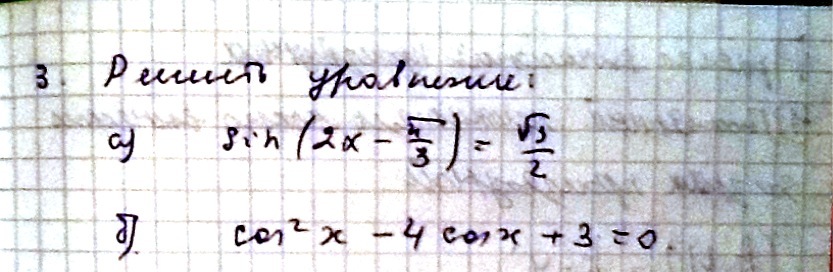 3. Решить уравнение:
а) sin (2x - π/3) = √3/2
б) cos² x - 4 cos x + 3 = 0.